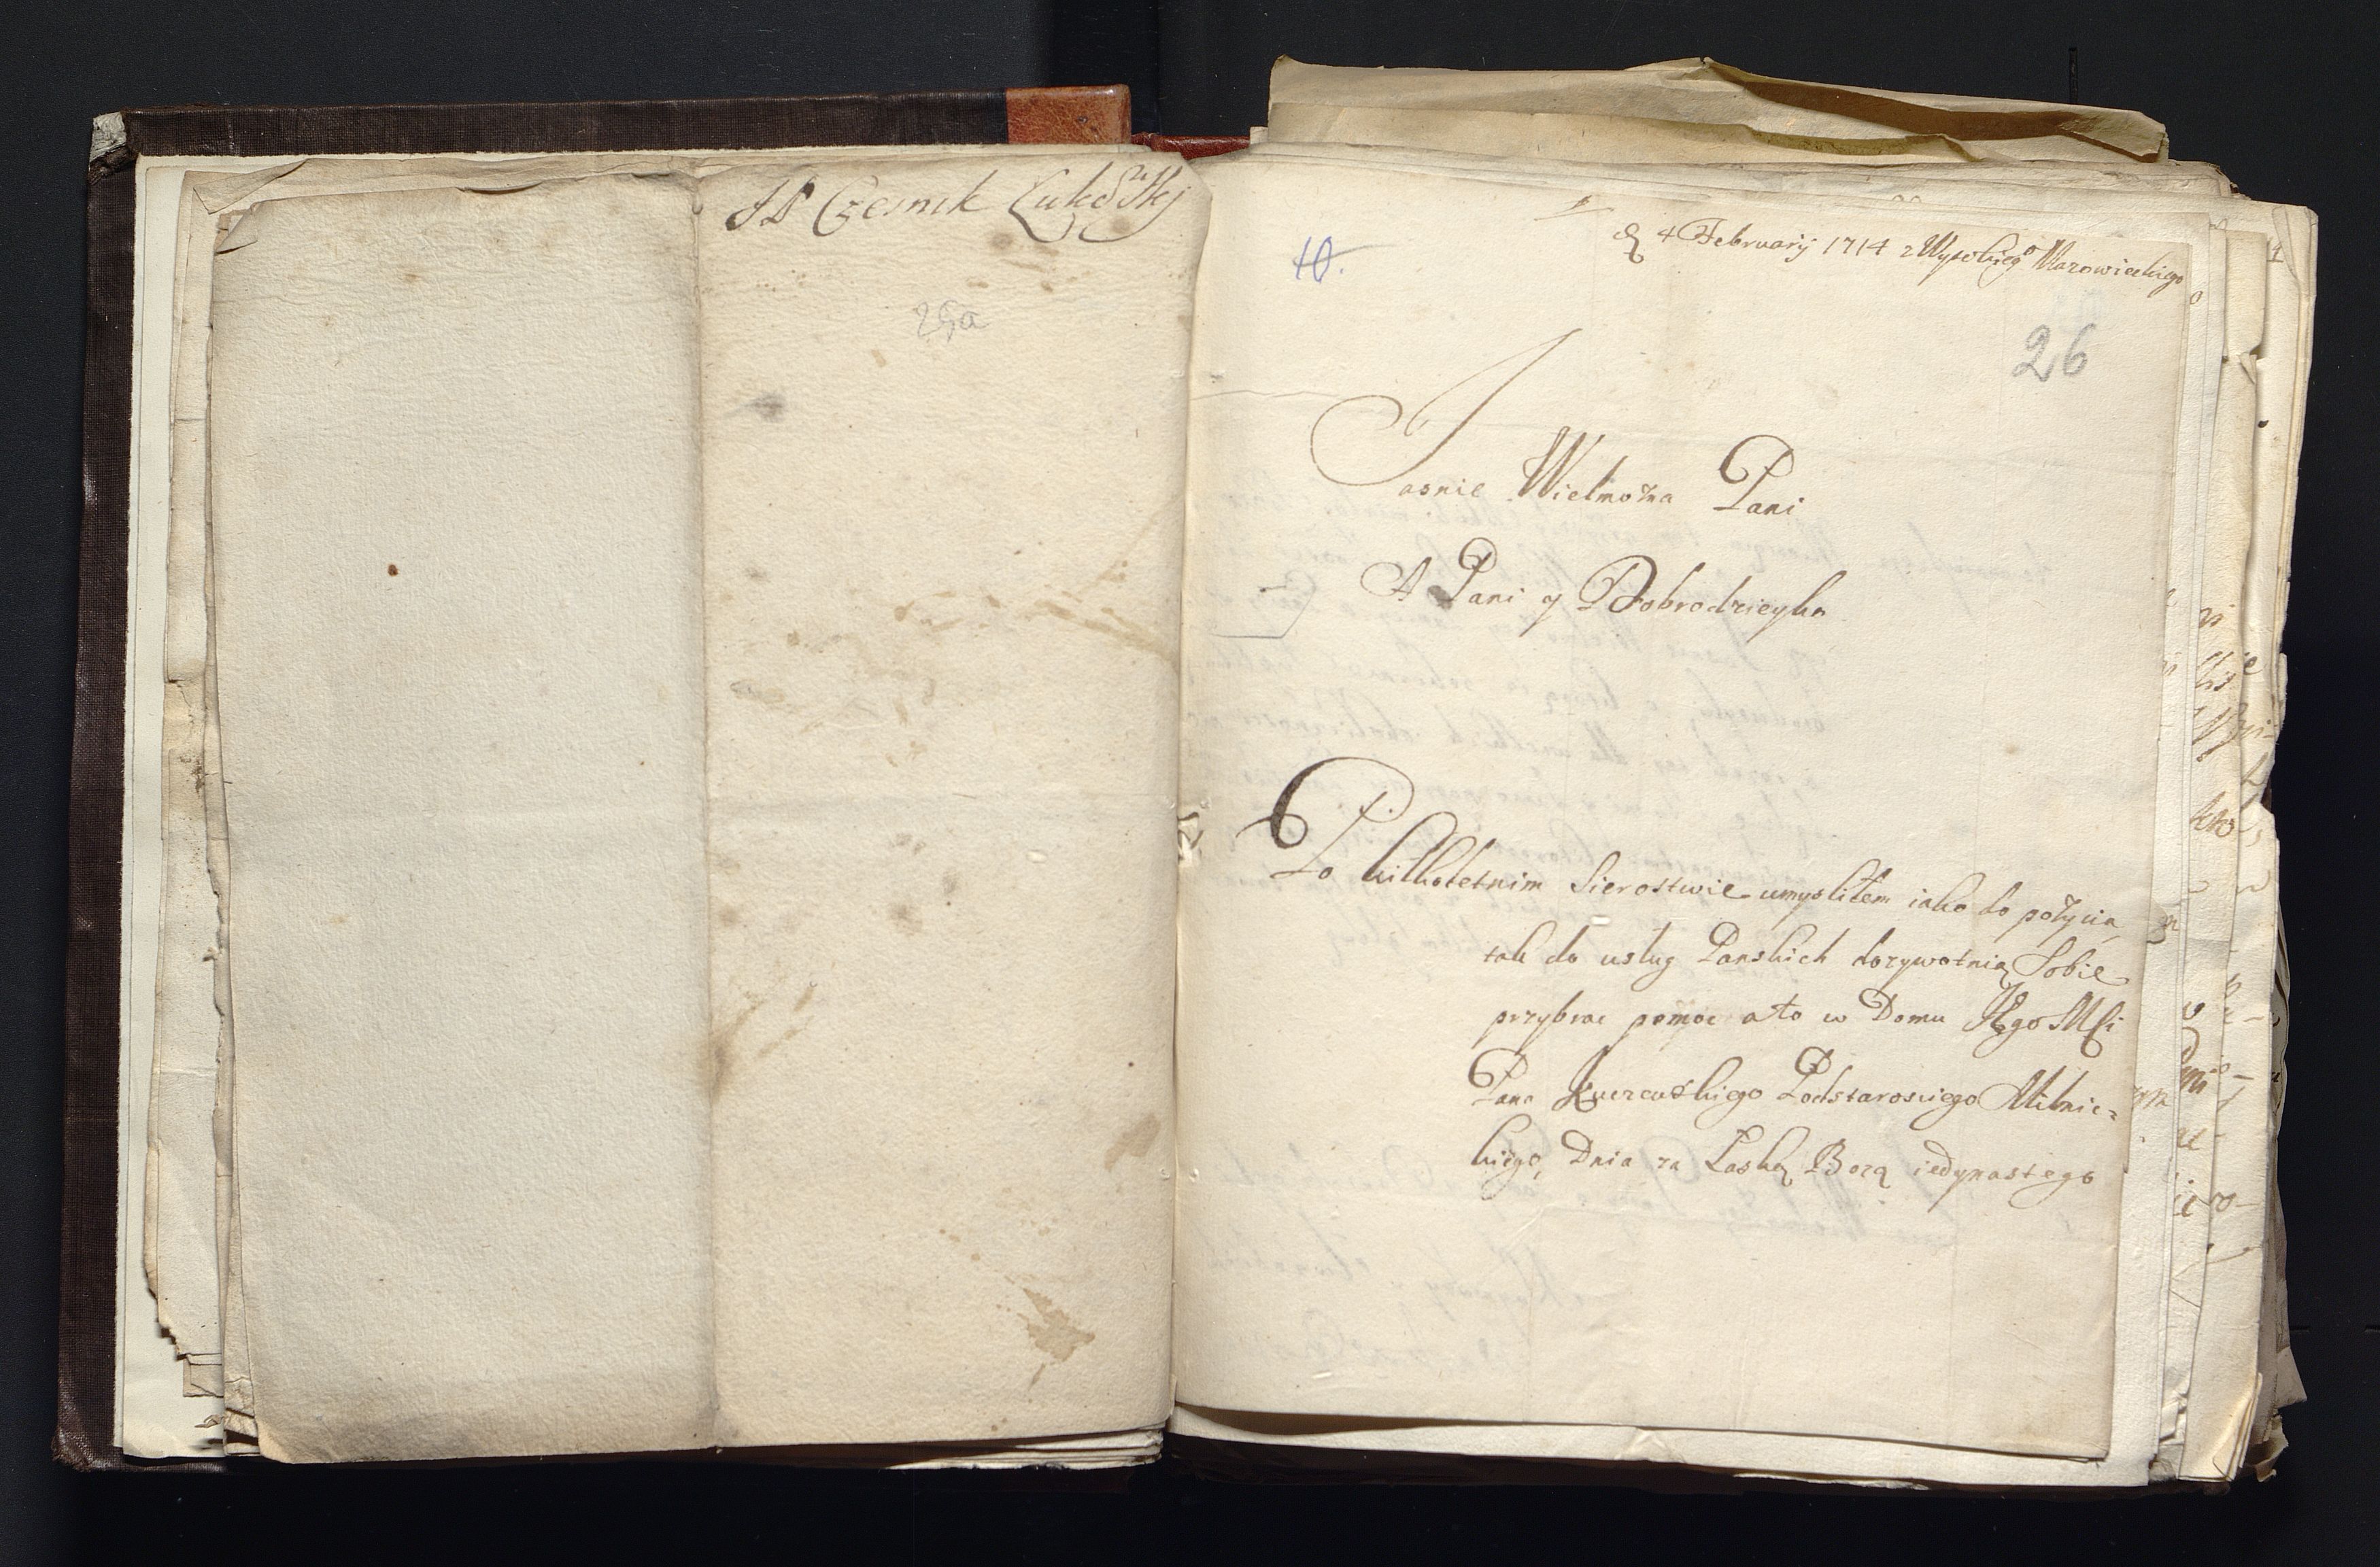 JP Czesnik Łukowskj
25a
10.
d 4 February 1714 z Wysokiego Mazowieckiego
26
Jasnie Wielmożna Pani
A Pani y Dobrodzieyko
Po kilkoletnim Sierostwie umysliłem iako do pożycia
tak do usług Panskich dozywotnią Sobie
przybrac pomoc a to w Domu JEgo MSci
Pana Kuczewskiego Podstarosciego Mielnic=
kiego, Dnia za Łaską Bozą iedynastego